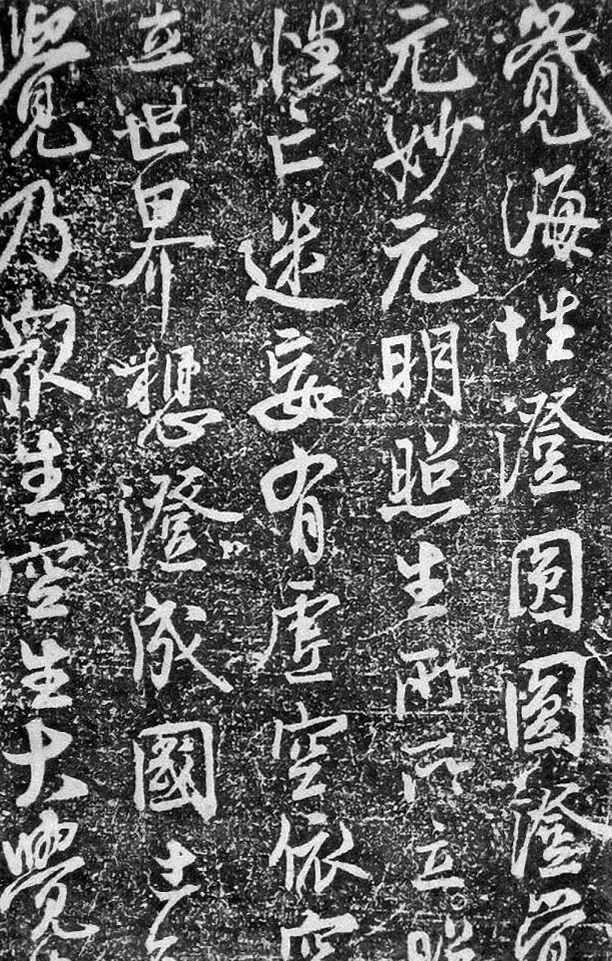 覺海性澄圓圓澄覺
元妙元明照生所所立照
性亡迷妄有虛空依空
立世界想澄成國土
覺乃眾生空生大覺